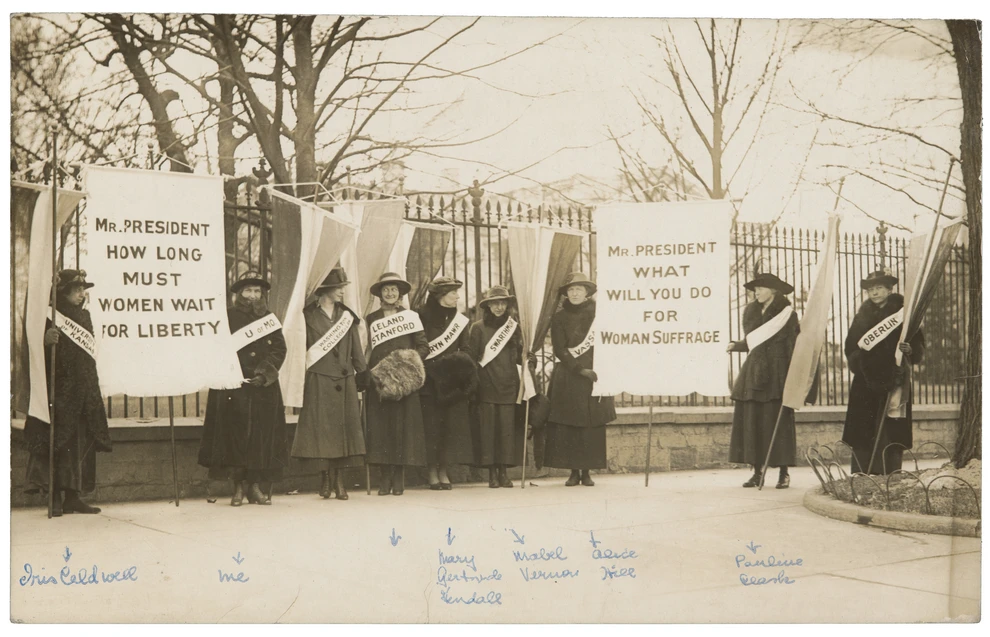 MR. PRESIDENT
HOW LONG
MUST
WOMEN WAIT
FOR LIBERTY
MR. PRESIDENT
WHAT
WILL YOU DO
FOR
WOMAN SUFFRAGE
UNIVER
KANSA
U OF MO
COLLEGE
LELAND
STANFORD
BRYN MAWR
SWARTHMO
VASS
OBERLIN
Iris Caldwell
me
Mary
Gertrude
Fendall
Mabel
Vernon
Alice
Hill
Pauline
Clark